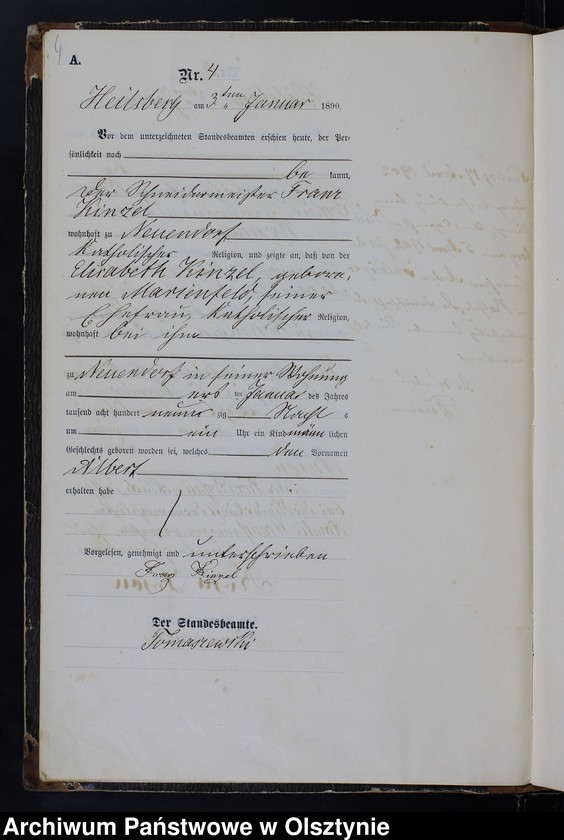 4
A.
Nr. 4
Heilsberg am 3ten Januar 1890.
Vor dem unterzeichneten Standesbeamten erschien heute, der Per-
sönlichkeit nach
be kannt,
der Schneidermeister Franz
Kinzel
wohnhaft zu Neuendorf
Katholischer Religion, und zeigte an, daß von der
Elisabeth Kinzel, gebore-
nen Marienfeld, seiner
Ehefrau, Katholischer Religion,
wohnhaft bei ihm
zu Neuendorf in seiner Wohnung
am ersten Januar des Jahres
tausend acht hundert neunzig Nacht
um ein Uhr ein Kind männlichen
Geschlechts geboren worden sei, welches den Vornamen
Albert
erhalten habe
Vorgelesen, genehmigt und unterschrieben
Franz Kinzel
Der Standesbeamte.
Tomaszewski
Archiwum Państwowe w Olsztynie